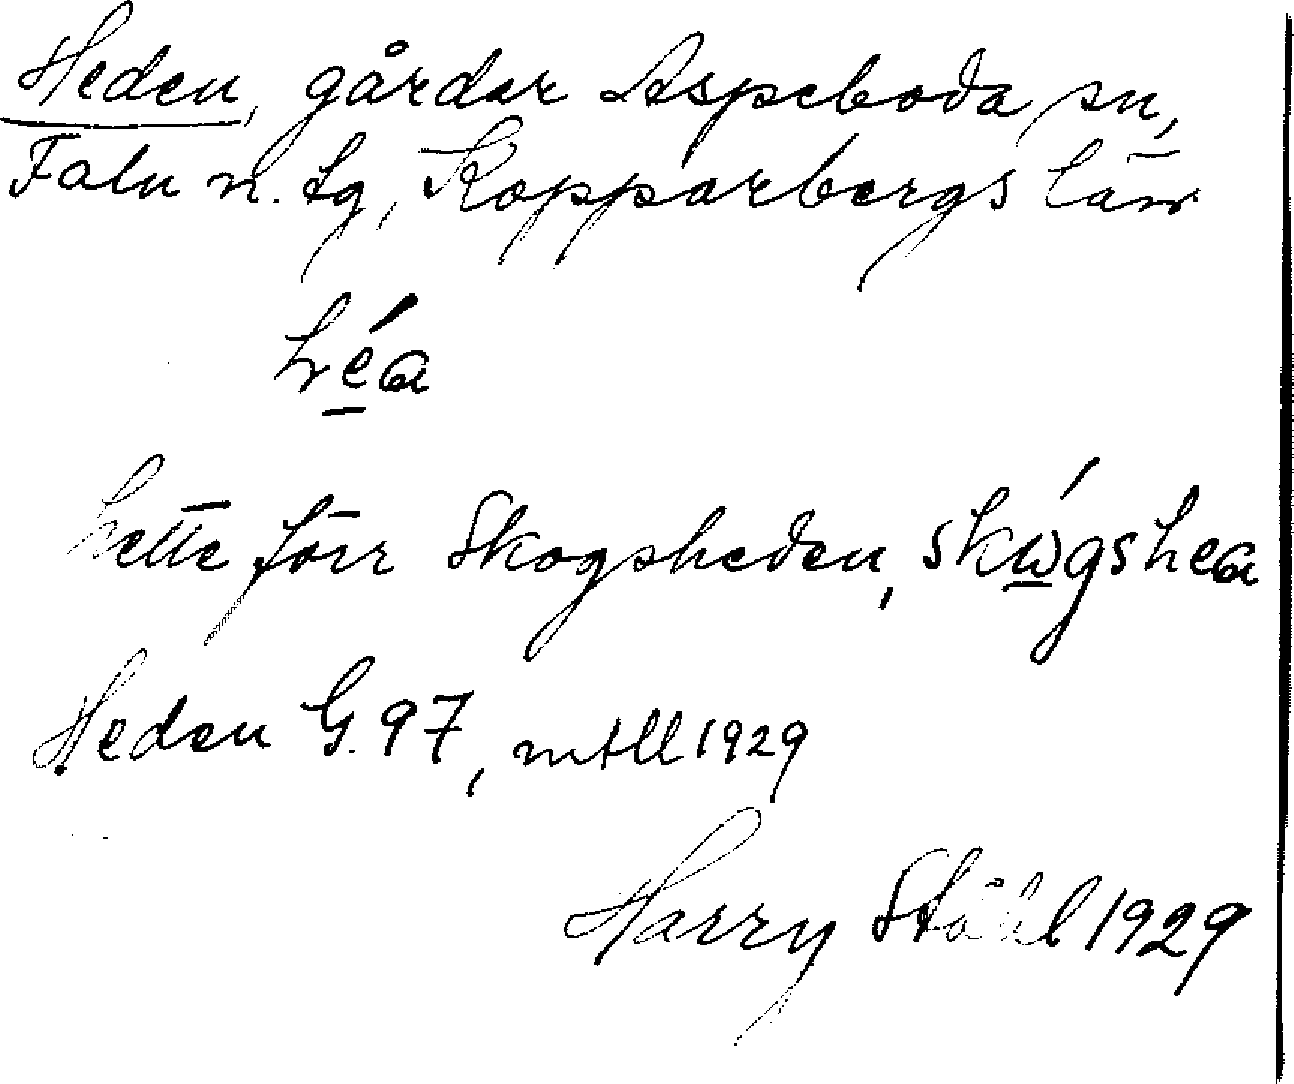 Heden, gårdar Aspeboda sn,
Falu n. tg, Kopparbergs län
hé̲a
hette förr Skogsheden, skώ̲gshea
Heden G. 97, mtll 1929
Harry Ståhl 1929